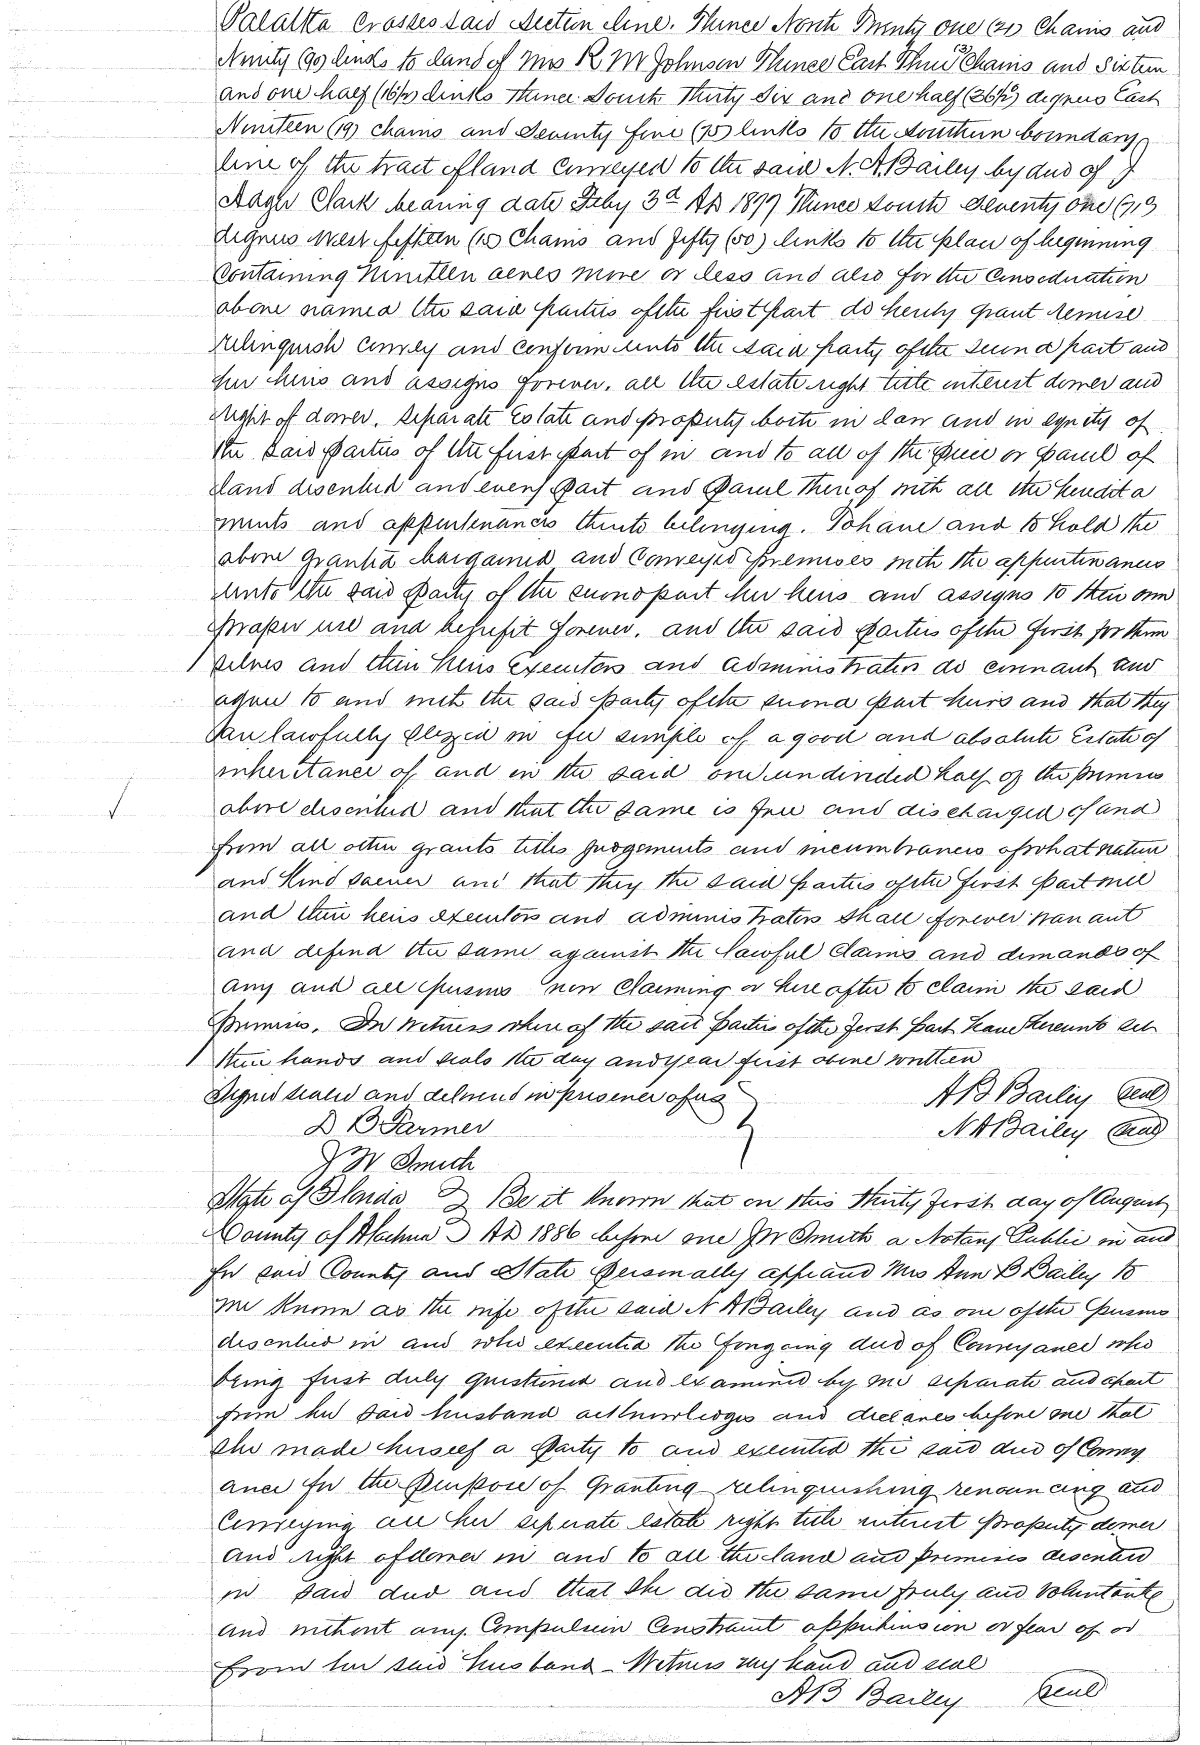 Palatka crosses said section line. Thence North Twenty one (21) Chains and
Ninity (90) links to land of Mrs R M Johnson Thence East Three (3) Chains and Sixteen
and one half (16½) links thence South Thirty Six and one half (36½°) degrees East
Nineteen (19) chains and Seventy five (75) links to the southern boundary
line of the tract of land conveyed to the said N. A. Bailey by deed of J
Clark bearing date Feby 3d AD 1877 Thence South Seventy one (71°)
degrees West fifteen (15) Chains and fifty (50) links to the place of beginning
Containing Nineteen acres more or less and also for the Consideration
above named the said parties of the first part do hereby grant remise
relinquish convey and confirm unto the said party of the second part and
her heirs and assigns forever. all the estate right title interest dower and
right of dower. Separate Estate and property both in law and in equity of
the said parties of the first part of in and to all of the piece or parcel of
land described and every part and parcel thereof with all the heredita
ments and appertenances thereto belonging. To have and to hold the
above granted bargained and conveyed premises with the appurtinances
unto the said party of the second part her heirs and assigns to their own
proper use and benefit forever. and the said parties of the first for them
selves and their heirs Executors and administrators do covenant and
agree to and with the said party of the second part heirs and that they
are lawfully siezed in fee simple of a good and absolute Estate of
inheritance of and in the said one undivided half of the premises
above described and that the same is free and discharged of and
from all other grants titles judgements and incumbrances of what nature
and kind soever and that they the said parties of the first part will
and their heirs executors and administrators shall forever warrant
and defend the same against the lawful claims and demands of
any and all persons now claiming or here after to claim the said
premises. In Witness where of the said parties of the first part have hereunto set
their hands and seals the day and year first above written
Signed sealed and delivered in presence of us
A B Bailey Seal
D B Farmer
N A Bailey Seal
J W Smith
State of Florida } Be it known that on this thirty first day of August
County of Alachua } AD 1886 before me J W Smith a Notary Public in and
for said County and State personally appeared Mrs Ann B Bailey to
me known as the wife of the said N A Bailey and as one of the persons
described in and who executed the foregoing deed of Conveyance who
being first duly questioned and examined by me separate and apart
from her said husband acknowledges and declares before me that
she made herself a party to and executed the said deed of Convey
ance for the purpose of granting relinquishing renouncing and
Conveying all her seperate estate right title interest property dower
and right of dower in and to all the land and premises described
in said deed and that she did the same freely and voluntarily
and without any Compulsion Constraint apprehension or fear of or
from her said husband - Witness my hand and seal
A B Bailey Seal